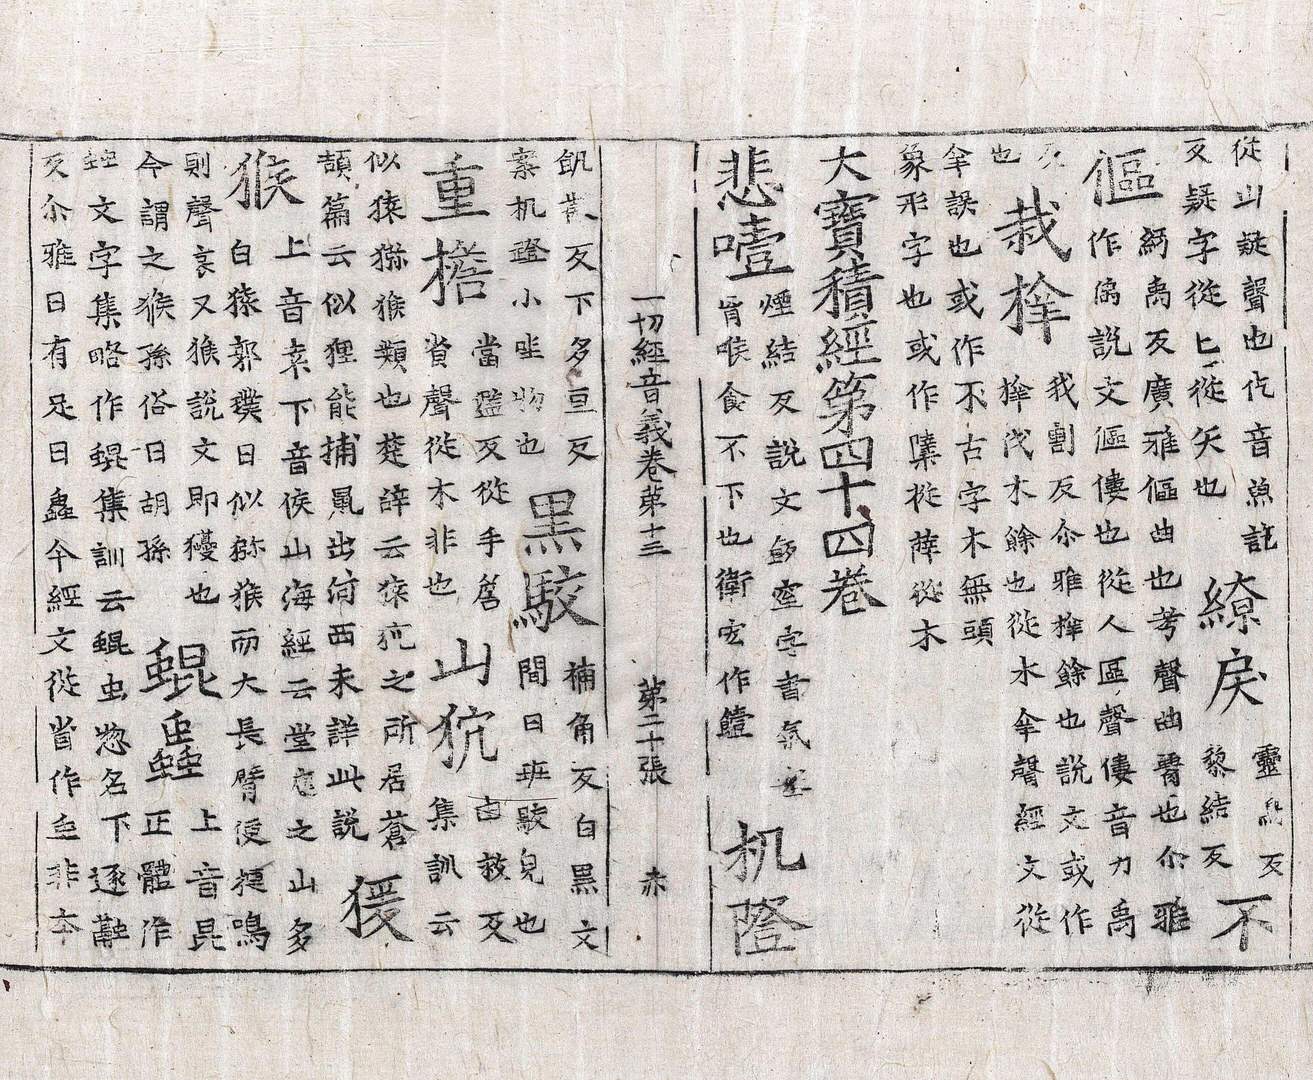 從山疑聲也仡音魚訖
反疑字從匕從矢也
繚戾
靈鳥反
黎結反
不
傴
紆禹反廣雅傴曲也考聲曲脊也尒雅
作傴說文傴僂也從人區聲僂音力禹
反
也
栽㭼
我割反尒雅㭼餘也說文或作
㭼伐木餘也從木㚔聲經文從
㚔誤也或作不古字木無頭
象形字也或作㰇從薛從木
大寶積經第四十四卷
悲噎
煙結反說文飯窒字書氣
胷喉食不下也衛宏作饐
机隥
一切經音義卷第十三 第二十張 赤
飢 反下多亘反
案机隥小坐物也
黑駮
補角反白黑文
間曰班駮皃也
重擔
當濫反從手詹
省聲從木非也
山狖
由救反
集訓云
似猿猕猴類也楚辭云猨狖之所居蒼
頡篇云似狸能捕鼠出河西未詳此說
猨
猴
上音袁下音侯山海經云堂庭之山多
白猿郭璞曰似猕猴而大長臂便揵鳴
則聲哀又猴說文即㹶也
今謂之猴孫俗曰胡孫
蜫䖝
上音昆
正體作
䖵文字集略作蜫集訓云蜫虫惣名下逐融
反尒雅曰有足曰蟲今經文從省作䖝非本